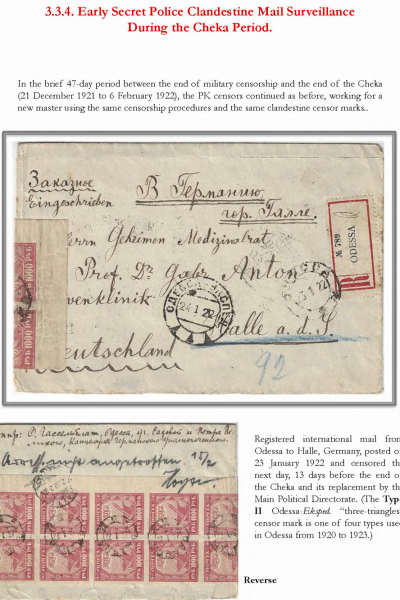 3.3.4. Early Secret Police Clandestine Mail Surveillance
During the Cheka Period.
In the brief 47-day period between the end of military censorship and the end of the Cheka
(21 December 1921 to 6 February 1922), the PK censors continued as before, working for a
new master using the same censorship procedures and the same clandestine censor marks..
Заказное
Eingeschrieben
В Германию
гор. Галле.
Herrn Geheimen Medizinalrat
Prof. Dr. Gabr. Anton
venklinik
Halle a. d. S.
Deutschland
92
№ 789
ODESSA
R
ОДЕССА
24 1 22
1000 РУБ
1000 РУБ
Одесса, уг. Садовой и Петра Ве-
ликого,
15/2
ПОЧТА
Registered international mail from
Odessa to Halle, Germany, posted on
23 January 1922 and censored the
next day, 13 days before the end of
the Cheka and its replacement by the
Main Political Directorate. (The Typ
II Odessa-Eksped. “three-triangles”
censor mark is one of four types used
in Odessa from 1920 to 1923.)
Reverse